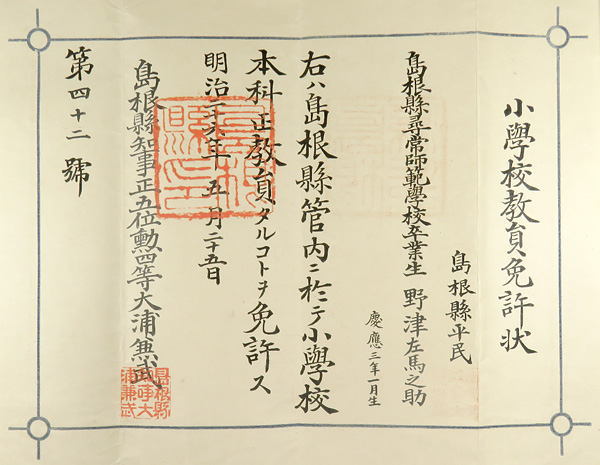 小學校教員免許状
島根縣平民
島根縣尋常師範學校卒業生 野津左馬之助
慶應三年一月生
右ハ島根縣管内ニ於テ小學校
本科正教員タルコトヲ免許ス
明治二十六年五月二十五日
島根縣知事正五位勲四等大浦兼武
第四十二號